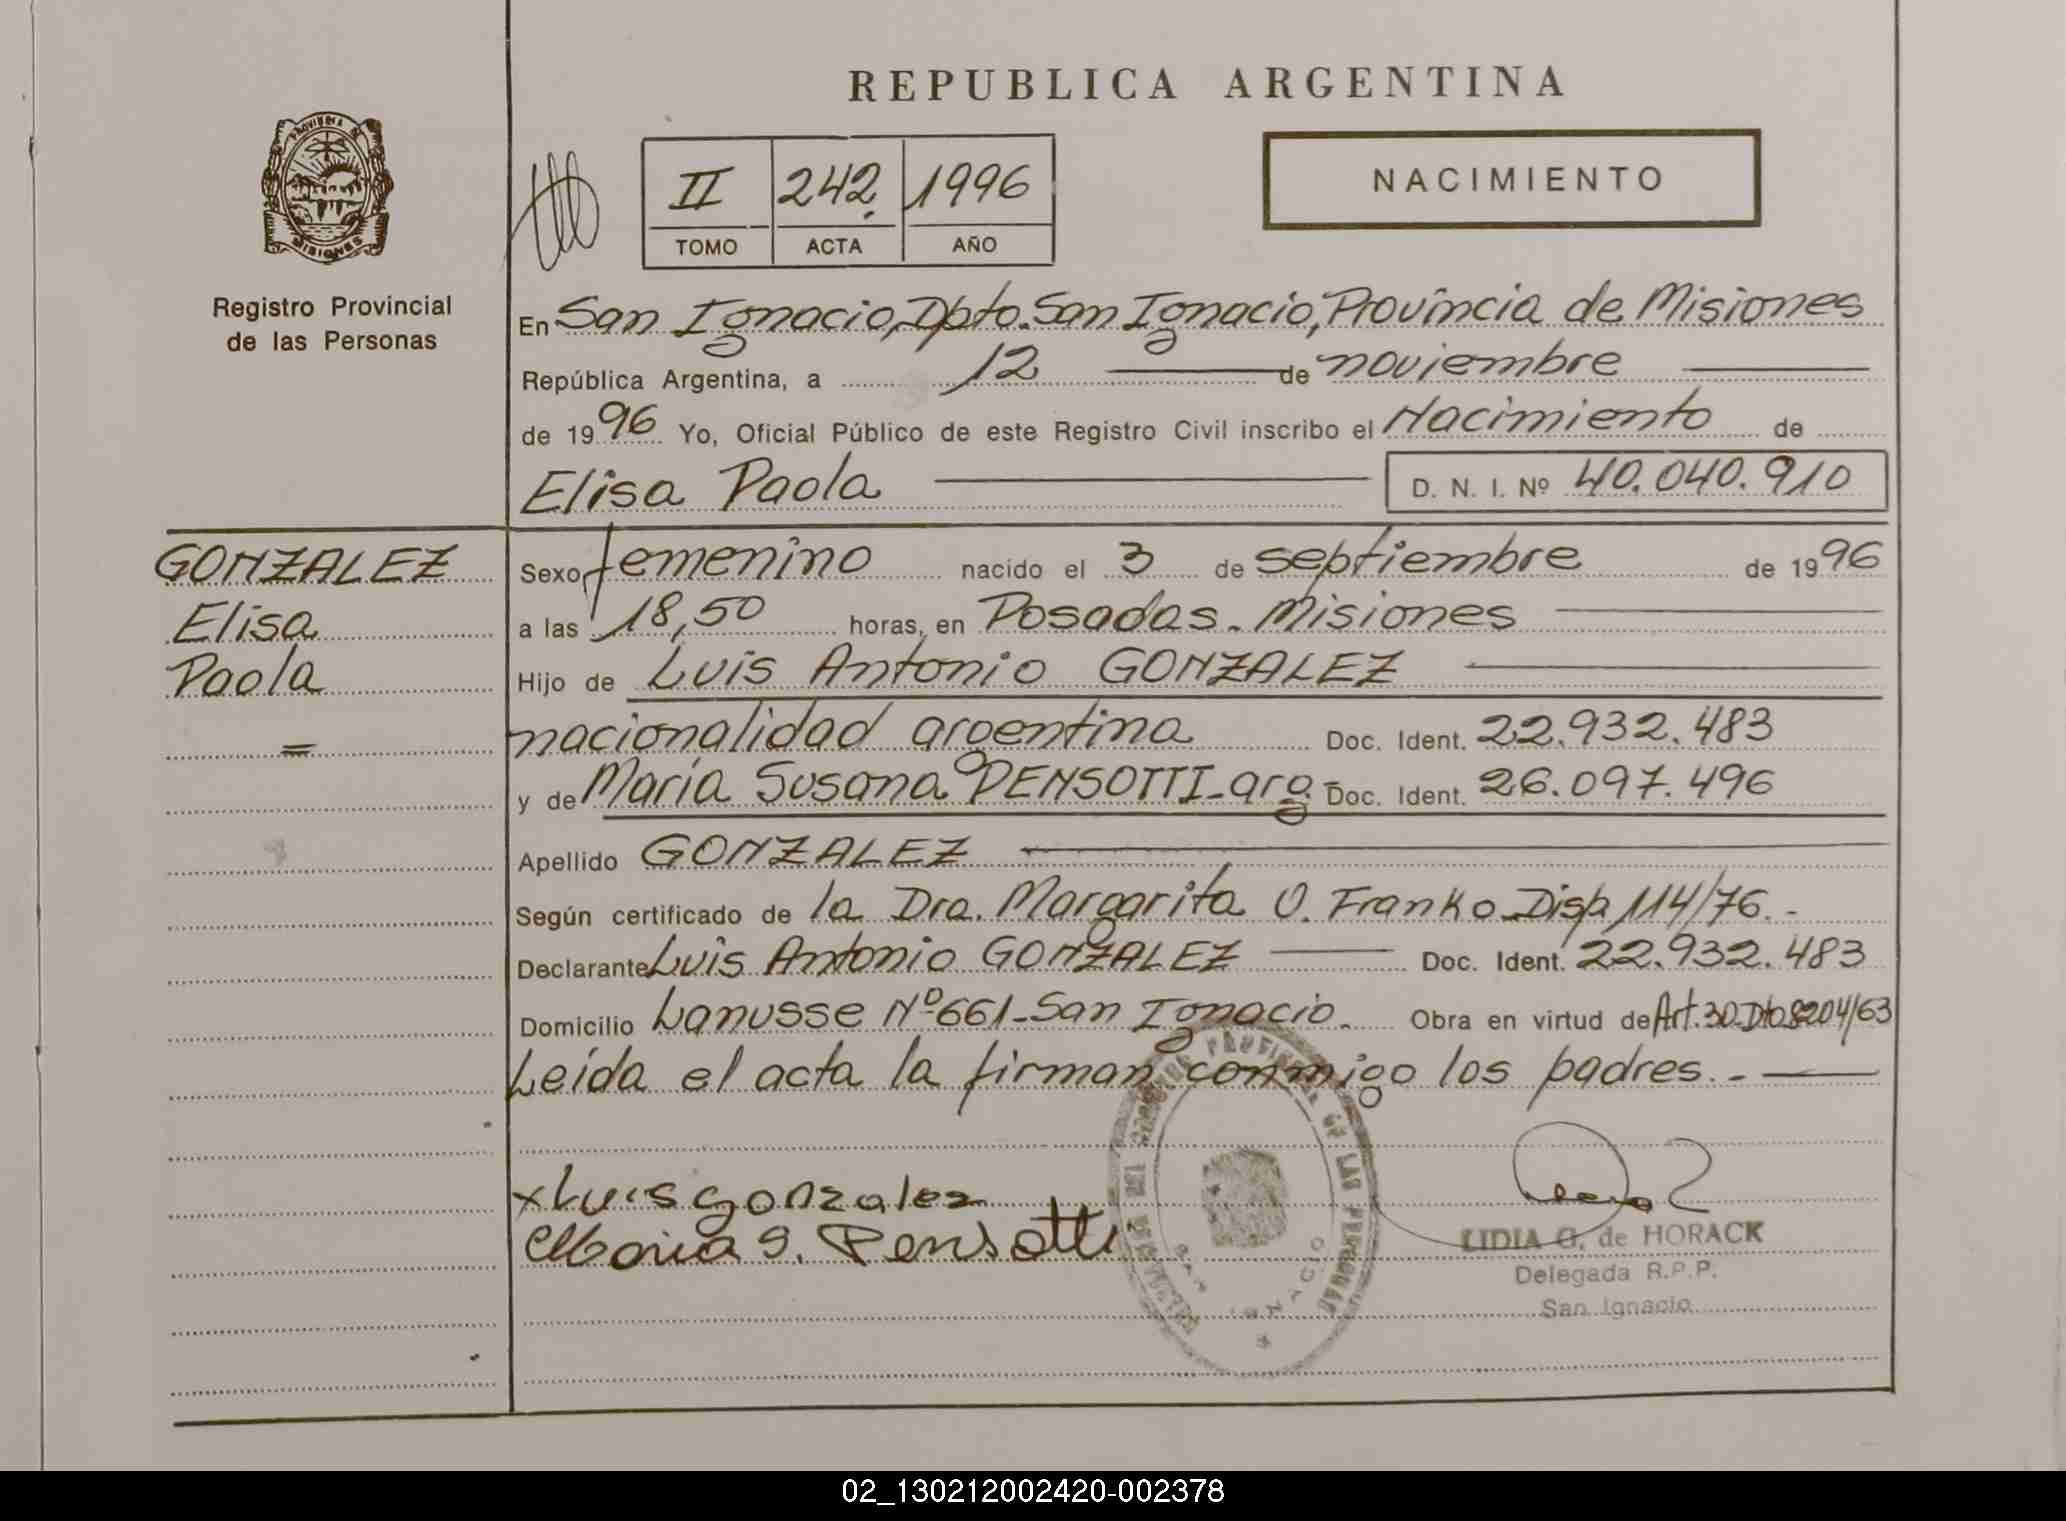 REPUBLICA ARGENTINA
PROVINCIA DE
MISIONES
Registro Provincial
de las Personas
II 242. 1996
TOMO ACTA AÑO
NACIMIENTO
En San Ignacio, Dpto. San Ignacio, Provincia de Misiones
República Argentina, a 12 de noviembre
de 1996 Yo, Oficial Público de este Registro Civil inscribo el Nacimiento de
Elisa Paola D. N. I. Nº 40.040.910
GONZALEZ
Elisa
Paola
=
Sexo femenino nacido el 3 de septiembre de 1996
a las 18,50 horas, en Posadas - Misiones
Hijo de Luis Antonio GONZALEZ
nacionalidad argentina Doc. Ident. 22.932.483
y de María Susana PENSOTTI - arg. Doc. Ident. 26.097.496
Apellido GONZALEZ
Según certificado de la Dra. Margarita O. Franko Disp. 114/76.-
Declarante Luis Antonio GONZALEZ Doc. Ident. 22.932.483
Domicilio Lanusse Nº 661 - San Ignacio. Obra en virtud de Art. 30. Dto 8204/63
Leída el acta la firman conmigo los padres.-
x Luis gonzalez
Maria S. Pensotti
PROVINCIAL DE LAS PERSONAS
SAN IGNACIO
LIDIA G. de HORACK
Delegada R.P.P.
San Ignacio
02_130212002420-002378